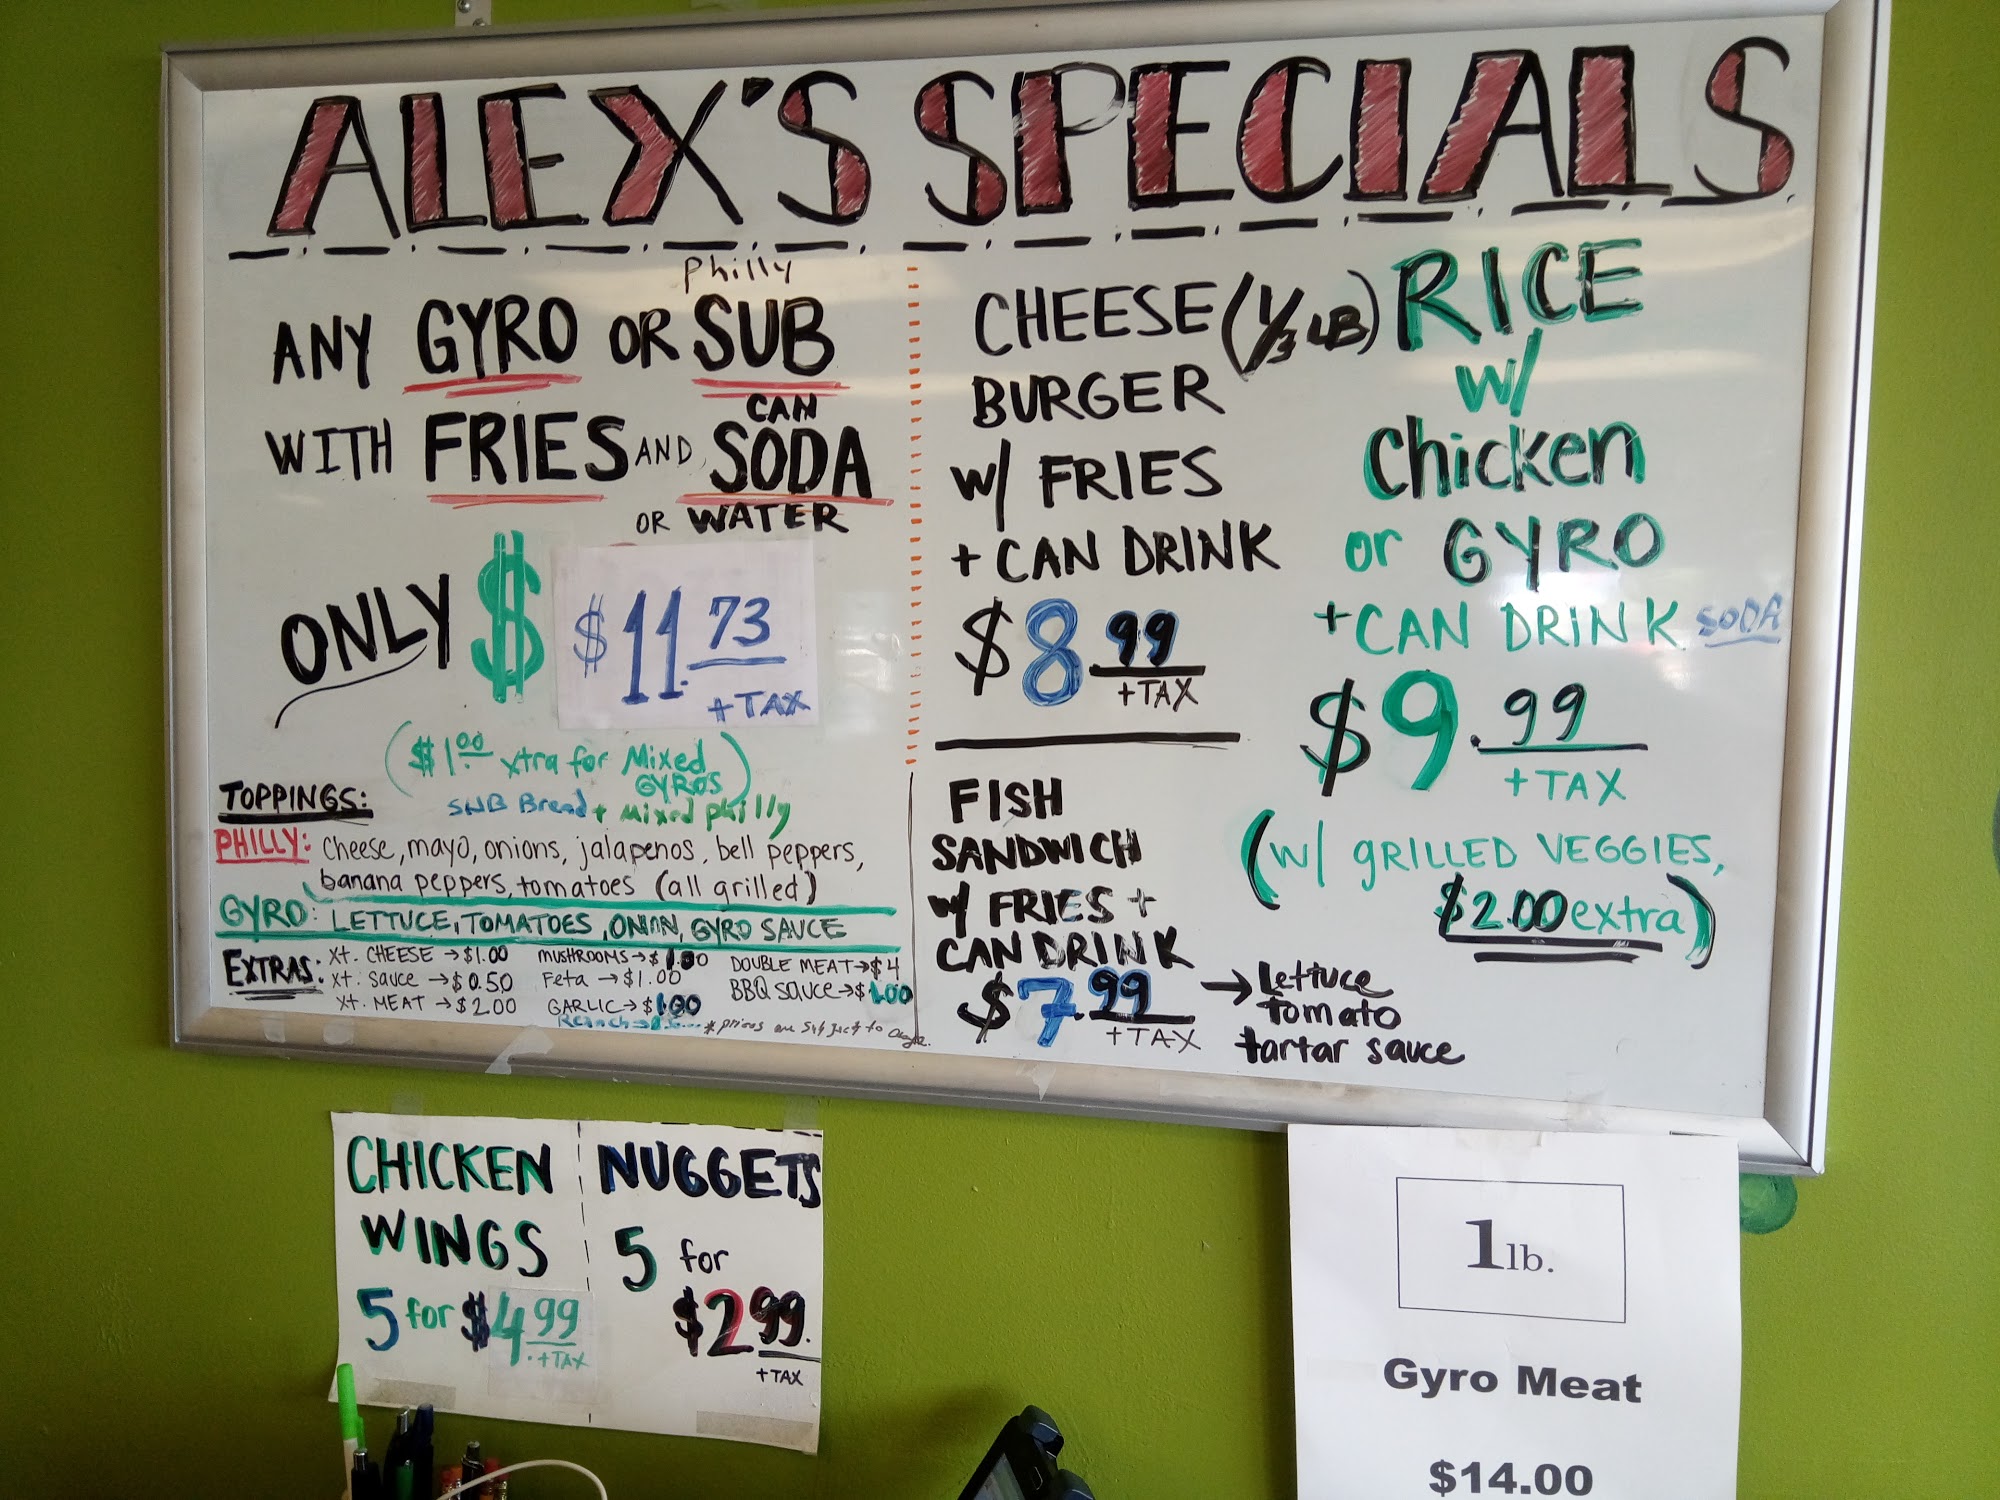 ALEX'S SPECIALS
philly
ANY GYRO OR SUB
CAN
WITH FRIES AND SODA
OR WATER
ONLY $ $11.73
+ TAX
($1.00 xtra for Mixed
GYROS)
SUB Bread + Mixed philly
TOPPINGS:
PHILLY: cheese, mayo, onions, jalapenos, bell peppers,
banana peppers, tomatoes (all grilled)
GYRO: LETTUCE, TOMATOES, ONION, GYRO SAUCE
EXTRAS: xt. CHEESE → $1.00
xt. sauce → $0.50
xt. MEAT → $2.00
MUSHROOMS → $1.00
Feta → $1.00
GARLIC → $1.00
Ranch →
DOUBLE MEAT → $4
BBQ sauce → $1.00
* prices are subject to change.
CHEESE (1/3 LB)
BURGER
w/ FRIES
+ CAN DRINK
$8.99
+ TAX
FISH
SANDWICH
w/ FRIES +
CAN DRINK
$7.99
+ TAX
→ Lettuce
tomato
tartar sauce
RICE
w/
chicken
or GYRO
+ CAN DRINK SODA
$9.99
+ TAX
(w/ GRILLED VEGGIES,
$2.00 extra)
CHICKEN
WINGS
5 for $4.99
+ TAX
NUGGETS
5 for
$2.99
+ TAX
1 lb.
Gyro Meat
$14.00